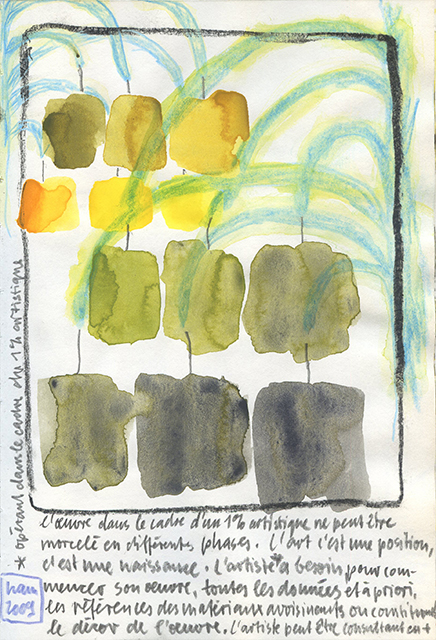 * opérant dans le cadre du 1% artistique
L'œuvre dans le cadre d'un 1% artistique ne peut être
morcelé en différents phases. L'art c'est une position,
c'est une naissance. L'artiste* a besoin, pour com-
mencer son œuvre, toutes les données et à priori,
les références des matériaux avoisinants ou constituant
le décor de l'œuvre. L'artiste peut être consultant en+
2009